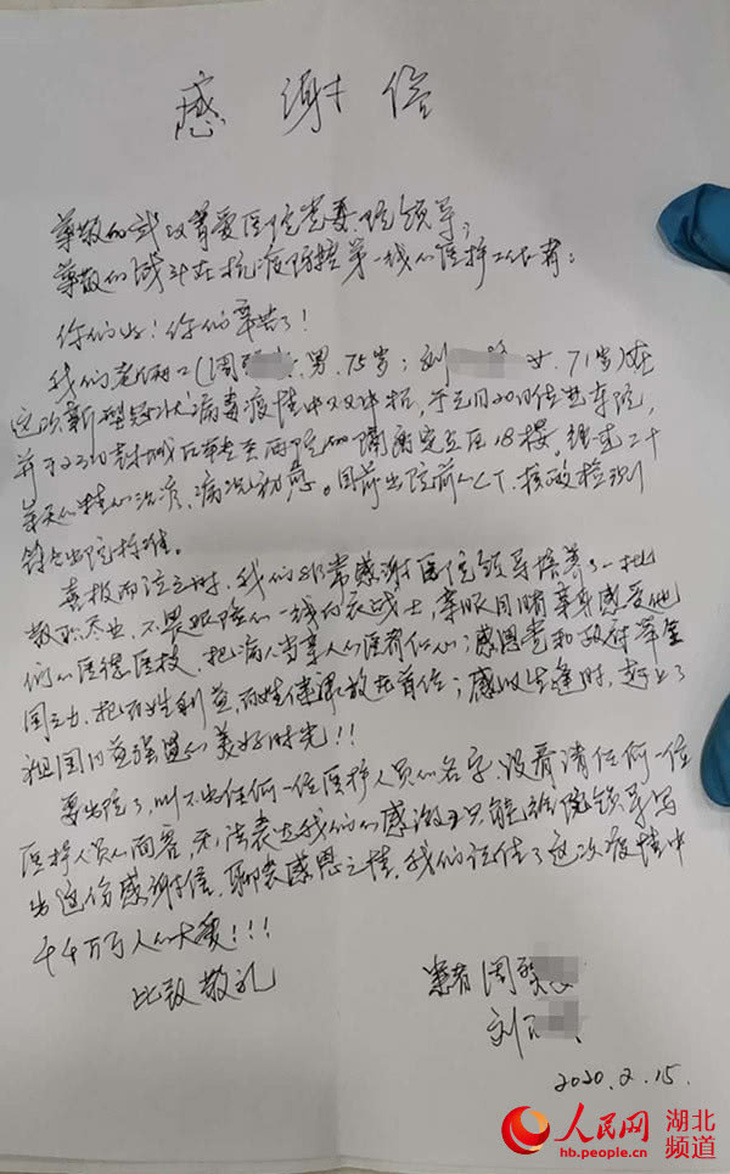 感谢信
尊敬的武汉普爱医院党委、院领导;
尊敬的战斗在抗疫防控第一线的医护工作者:
你们好!你们辛苦了!
我们老俩口(周 男、75岁;刘 女、71岁)在
这次新型冠状病毒疫情中双双中招,于元月20日住进本院,
并于23日封城后转至西院的隔离定点区18楼。经过二十
余天的精心治疗,病况初愈。目前出院前的CT、核酸检测
符合出院标准。
喜极而泣之时,我们非常感谢医院领导培养了一批
敬职尽业,不畏艰险的一线白衣战士,亲眼目睹亲身感受他
们的医德医技,把病人当亲人的医者仁心;感恩党和政府举全
国之力,把百姓利益,百姓健康放在首位;感叹生逢时,赶上了
祖国日益强盛的美好时光!!
要出院了,叫不出任何一位医护人员的名字,没看清任何一位
医护人员的面容,无法表达我们的感激,只能给院领导写
出这份感谢信,聊表感恩之情,我们记住了这次疫情中
千千万万人的大爱!!!
此致敬礼
患者周
刘
2020.2.15.
人民网 湖北频道
hb.people.cn